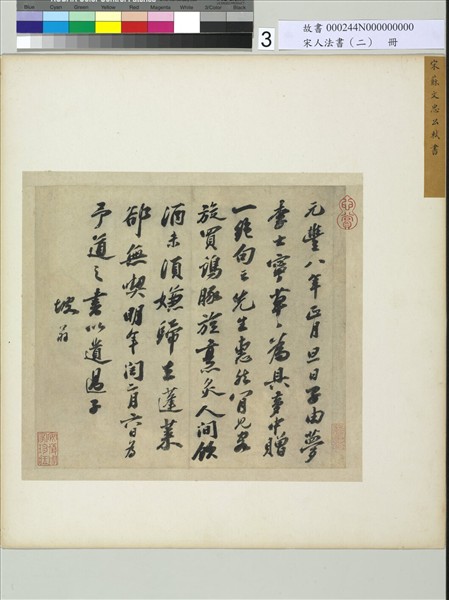 Blue Cyan Green Yellow Red Magenta White 3/Color Black
3
故書 000244N000000000
宋人法書（二） 冊
宋蘇文忠公牋書
元豐八年正月旦日子由夢
李士寧草〻為具夢中贈
一絕句云先生惠然肯見客
旋買鷄豚旋烹炙人間飲
酒未須嫌歸去蓬萊
卻無喫明年閏二月六日為
予道之書以遺過子
坡翁